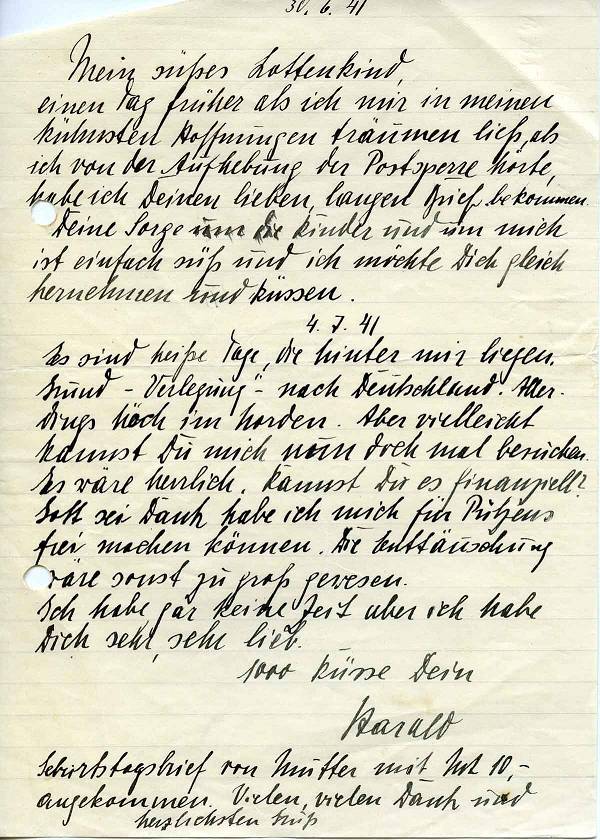 30. 6. 41
Mein süßes Lottenkind,
einen Tag früher als ich mir in meinen
kühnsten Hoffnungen träumen ließ, als
ich von der Aufhebung der Postsperre hörte,
habe ich Deinen lieben, langen Brief bekommen.
Deine Sorge um die Kinder und um mich
ist einfach süß und ich möchte Dich gleich
hernehmen und küssen.
4. 7. 41
Es sind heiße Tage, die hinter mir liegen.
Grund - Verlegung - nach Deutschland. Aller-
dings hoch im Norden. Aber vielleicht
kannst Du mich nun doch mal besuchen.
Es wäre herrlich. Kannst Du es finanziell?
Gott sei Dank habe ich mich für
frei machen können. Die Enttäuschung
wäre sonst zu groß gewesen.
Ich habe gar keine Zeit aber ich habe
Dich sehr, sehr lieb.
1000 Küsse Dein
Harald
Geburtstagsbrief von Mutter mit Mk 10,-
angekommen. Vielen, vielen Dank und
herzlichsten Gruß